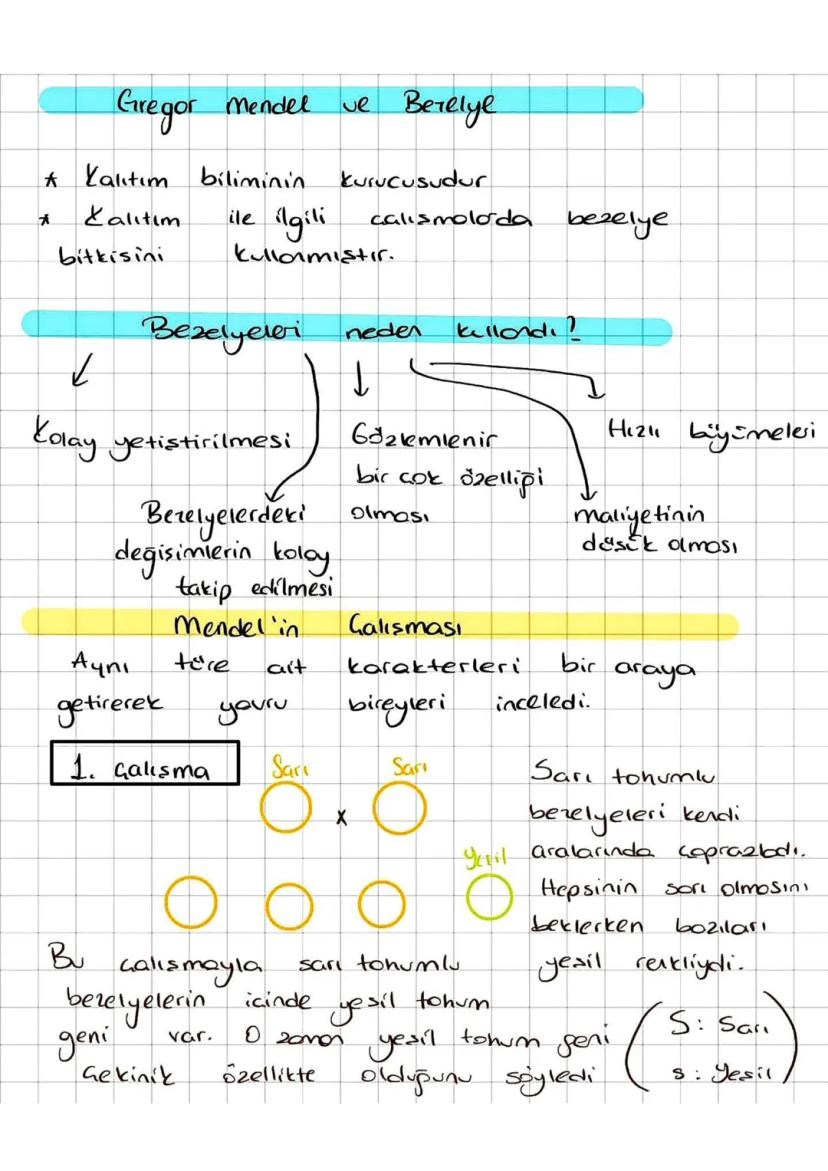 Gregor Mendel ve Bezelye
* Kalıtım biliminin kurucusudur
* Kalıtım ile ilgili calısmalarda bezelye
bitkisini kullanmıstır.
Bezelyeleri neden kullandı?
Kolay yetistirilmesi
Gözlemlenir
bir cok özelliği
olması
Hızlı büyümeleri
Bezelyelerdeki
değisimlerin kolay
takip edilmesi
maliyetinin
düsük olması
Mendel'in Çalısması
Aynı türe ait karakterleri bir araya
getirerek yavru bireyleri inceledi.
1. çalısma
Sarı x Sarı
Yesil
Sarı tohumlu
bezelyeleri kendi
aralarında çaprazladı.
Hepsinin sarı olmasını
beklerken bazıları
yesil renkliydi.
Bu çalısmayla sarı tohumlu
bezelyelerin icinde yesil tohum
geni var. O zaman yesil tohum geni
Çekinik özellikte olduğunu söyledi
S: Sarı
s: Yesil